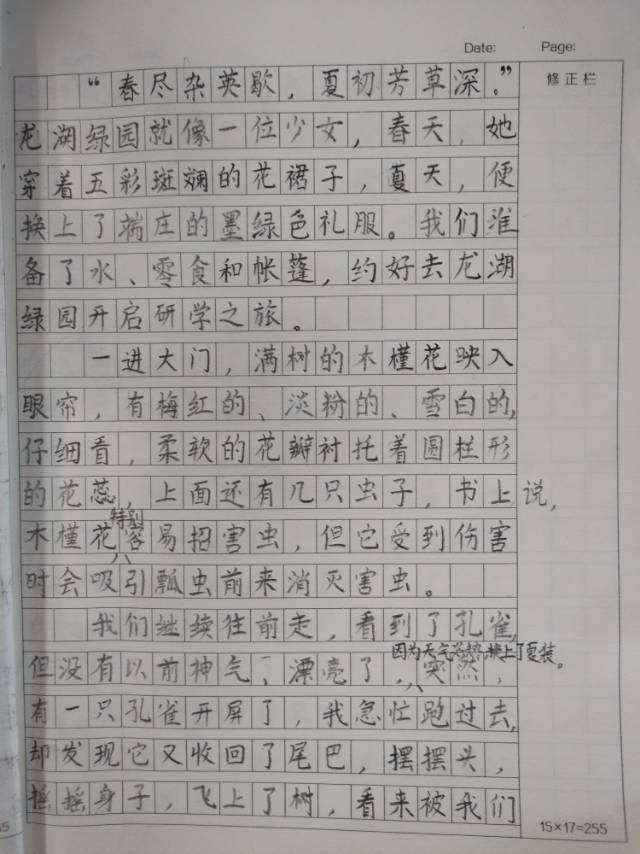 Date: Page:
修正栏
“春尽杂英歇，夏初芳草深。”
龙湖绿园就像一位少女，春天，她
穿着五彩斑斓的花裙子，夏天，便
换上了端庄的墨绿色礼服。我们准
备了水、零食和帐篷，约好去龙湖
绿园开启研学之旅。
一进大门，满树的木槿花映入
眼帘，有梅红的、淡粉的、雪白的，
仔细看，柔软的花瓣衬托着圆柱形
的花蕊，上面还有几只虫子，书上说，
特别
木槿花容易招害虫，但它受到伤害
时会吸引瓢虫前来消灭害虫。
我们继续往前走，看到了孔雀，
因为天气炎热，换上了夏装。
但没有以前神气、漂亮了，突然，
有一只孔雀开屏了，我急忙跑过去，
却发现它又收回了尾巴，摆摆头，
摇摇身子，飞上了树，看来被我们
15×17=255